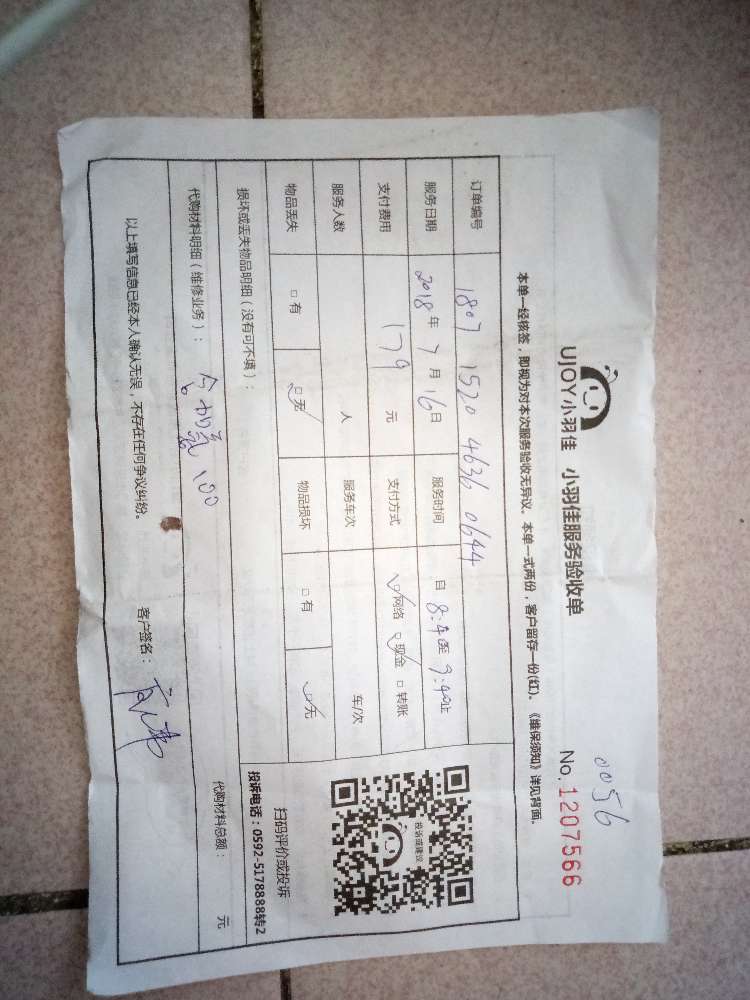 0056
UJOY小羽佳 小羽佳服务验收单 No. 1207566
本单一经核签，即视为对本次服务验收无异议。本单一式两份，客户留存一份(红)。《维保须知》详见背面。
订单编号 1807 1520 4636 0644
服务日期 2018年7月16日 服务时间 自8:40至9:40止
支付费用 179元 支付方式 网络 现金 转账
服务人数 人 服务车次 车/次
物品丢失 有 无 物品损坏 有 无
损坏或丢失物品明细（没有可不填）：
代购材料明细（维修业务）： 100 代购材料总额： 元
以上填写信息已经本人确认无误，不存在任何争议纠纷。 客户签名：
投诉或建议
扫码评价或投诉
投诉电话：0592-5178888转2